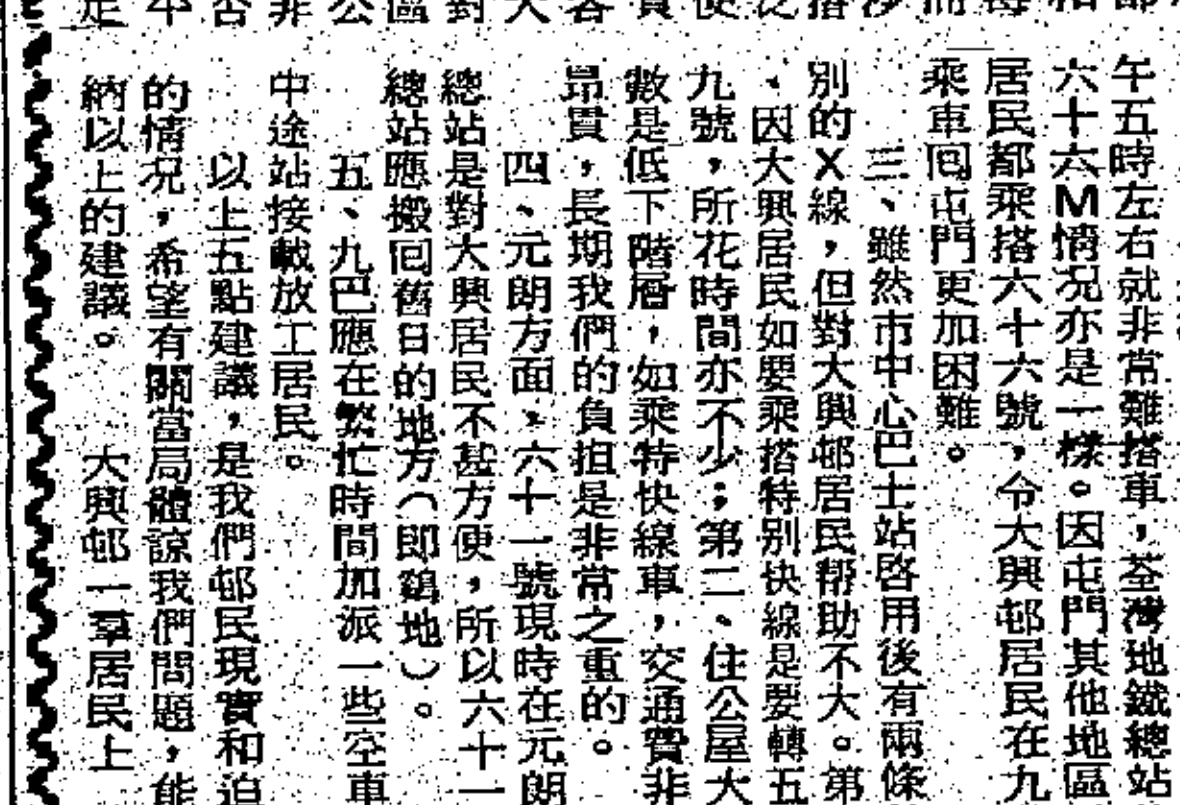 午五時左右就非常難搭車，荃灣地鐵總站
六十六M情況亦是一樣。因屯門其他地區
居民都乘搭六十六號，令大興邨居民在九
乘車囘屯門更加困難。
三、雖然市中心巴士站啓用後有兩條
別的X線，但對大興邨居民帮助不大。第
、因大興居民如要乘搭特別快線是要轉五
九號，所花時間亦不少；第二、住公屋大
數是低下階層，如乘特快線車，交通費非
昂貴，長期我們的負担是非常之重的。
四、元朗方面，六十一號現時在元朗
總站是對大興居民不甚方便，所以六十一
總站應搬囘舊日的地方（即鷄地）。
五、九巴應在繁忙時間加派一些空車
中途站接載放工居民。
以上五點建議，是我們邨民現實和迫
的情況，希望有關當局體諒我們問題，能
納以上的建議。　大興邨一羣居民上